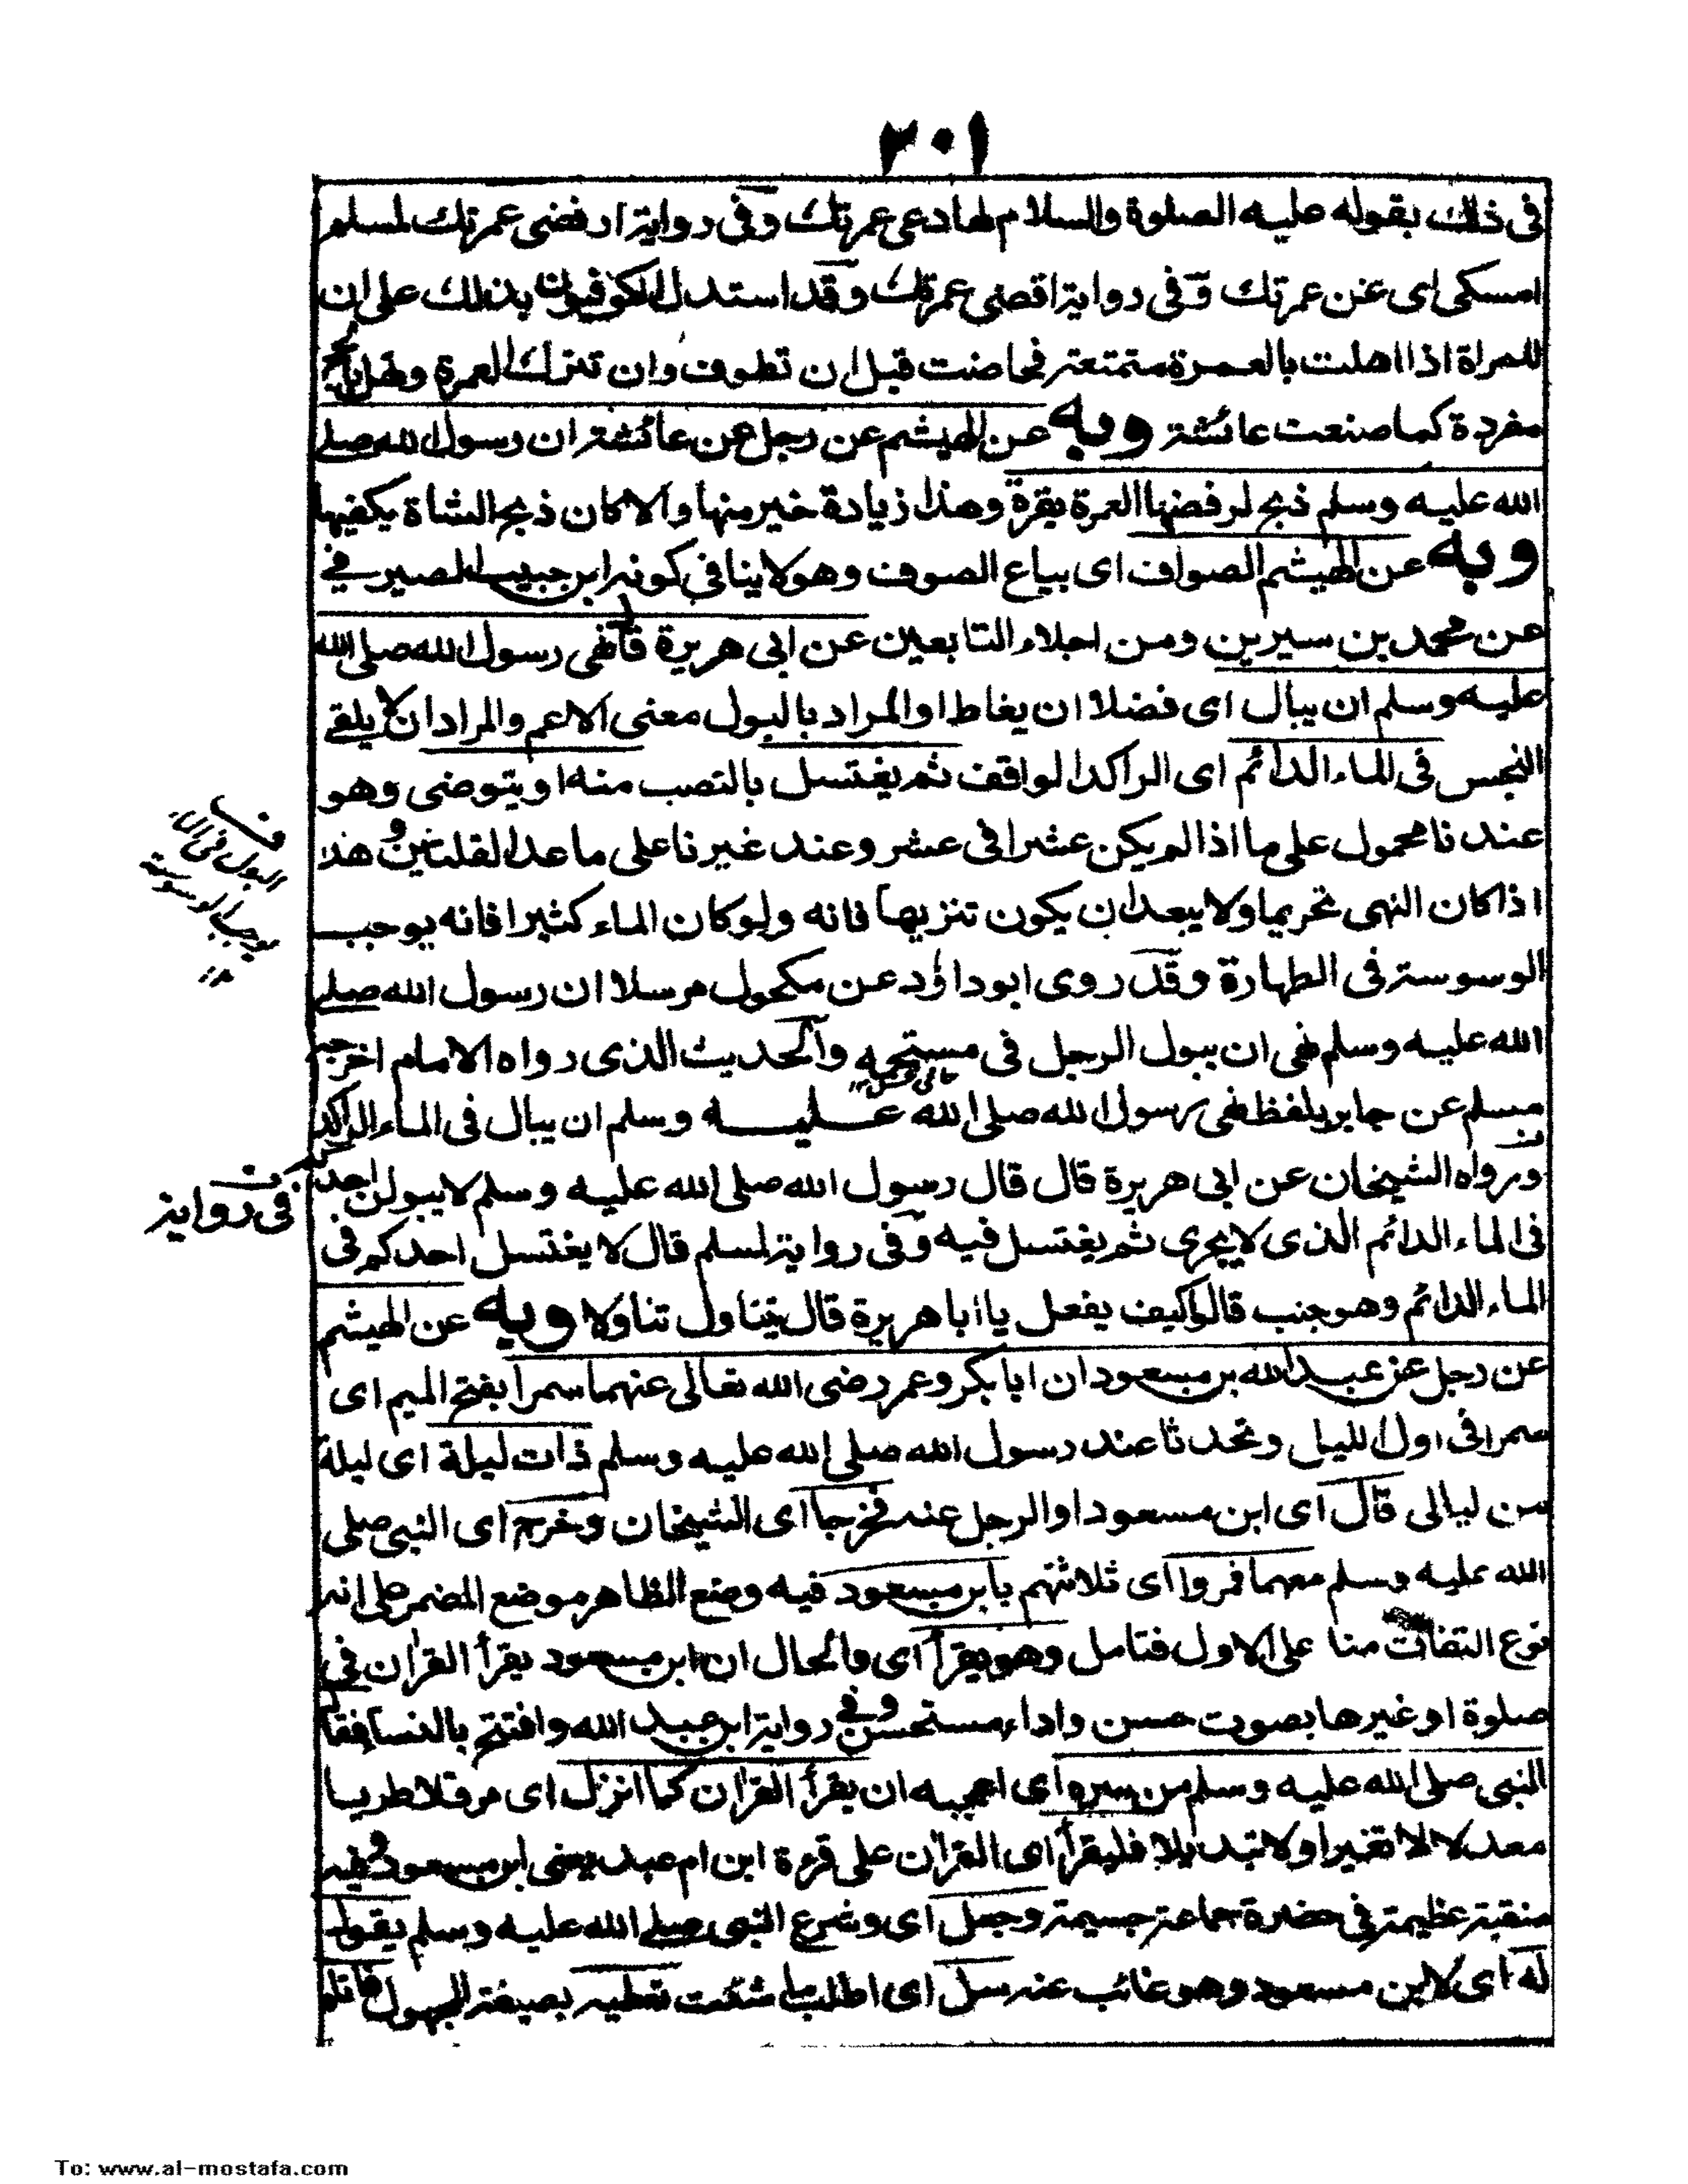 ٢٠١
فى ذلك بقوله عليه الصلوة والسلام لها دعى عمرتك وفى رواية ارفضى عمرتك لمسلم
امسكى اى عن عمرتك وفى رواية اقضى عمرتك وقد استدل الكوفيون بذلك على ان
للمراة اذا اهلت بالعمرة متمتعة فحاضت قبل ان تطوف وان تترك العمرة وتهل بالحج
مفردة كما صنعت عائشة وبه عن الهيثم عن رجل عن عائشة ان رسول الله صلى
الله عليه وسلم ذبح لرفضها العمرة بقرة وهذا زيادة خير منها والا كان ذبح الشاة يكفيها
وبه عن الهيثم الصواف اى بياع الصوف وهو لا ينافى كونه ابن حبيب الصيرفى
عن محمد بن سيرين ومن اجلاء التابعين عن ابى هريرة قال نهى رسول الله صلى الله
عليه وسلم ان يبال اى فضلا ان يغاط او المراد بالبول معنى الاعم والمراد ان لا يلقى
النجس فى الماء الدائم اى الراكد الواقف ثم يغتسل بالنصب منه او يتوضى وهو
عندنا محمول على ما اذا لم يكن عشرا فى عشر وعند غيرنا على ما عدا القلتين وهذا
اذا كان النهى تحريما ولا يبعد ان يكون تنزيها فانه ولو كان الماء كثيرا فانه يوجب
الوسوسة فى الطهارة وقد روى ابو داؤد عن مكحول مرسلا ان رسول الله صلى
الله عليه وسلم نهى ان يبول الرجل فى مستحمه والحديث الذى رواه الامام اخرجه
مسلم عن جابر بلفظ نهى رسول الله صلى الله عليه وسلم ان يبال فى الماء الراكد
ورواه الشيخان عن ابى هريرة قال قال رسول الله صلى الله عليه وسلم لا يبولن احدكم
فى الماء الدائم الذى لا يجرى ثم يغتسل فيه وفى رواية لمسلم قال لا يغتسل احدكم فى
الماء الدائم وهو جنب قالوا كيف يفعل يا ابا هريرة قال يتناول تناولا وبه عن الهيثم
عن رجل عن عبد الله بن مسعود ان ابا بكر وعمر رضى الله تعالى عنهما سمرا بفتح الميم اى
سمرا فى اول الليل وتحدثا عند رسول الله صلى الله عليه وسلم ذات ليلة اى ليلة
من ليالى قال اى ابن مسعود او الرجل عنه فخرجا اى الشيخان وخرج اى النبى صلى
الله عليه وسلم معهما فمروا اى ثلاثتهم بابن مسعود فيه وضع الظاهر موضع المضمر على انه
نوع التفات منا على الاول فتامل وهو يقرأ اى والحال ان ابن مسعود يقرأ القران فى
صلوة او غيرها بصوت حسن واداء مستحسن وفى رواية ابن عبد الله وافتتح بالنسا فقال
النبى صلى الله عليه وسلم من سره اى اعجبه ان يقرأ القران كما انزل اى مرتلا طريا
معدلا لا تغيرا ولا تبديلا فليقرأ اى القران على قرءة ابن ام عبد يعنى ابن مسعود وفيه
منقبة عظيمة فى حضرة جماعة جسيمة وجعل اى وشرع النبى صلى الله عليه وسلم يقول
له اى لابن مسعود وهو غائب عنه سل اى اطلب ما شئت تعطيه بصيغة المجهول فاتاه
البول فى الماء
يوجب الوسوسة
فى رواية
To: www.al-mostafa.com